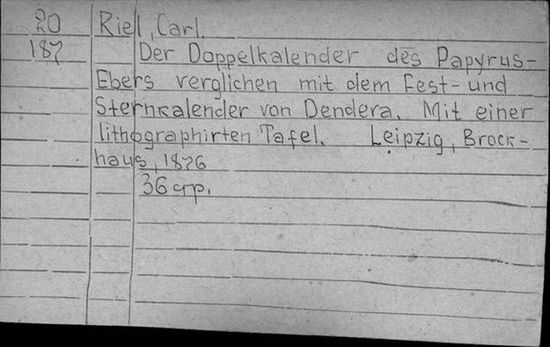 20 Riel, Carl.
187 Der Doppelkalender des Papyrus-
Ebers verglichen mit dem Fest- und
Sternkalender von Dendera. Mit einer
lithographirten Tafel. Leipzig, Brock-
haus, 1876
36 стр.